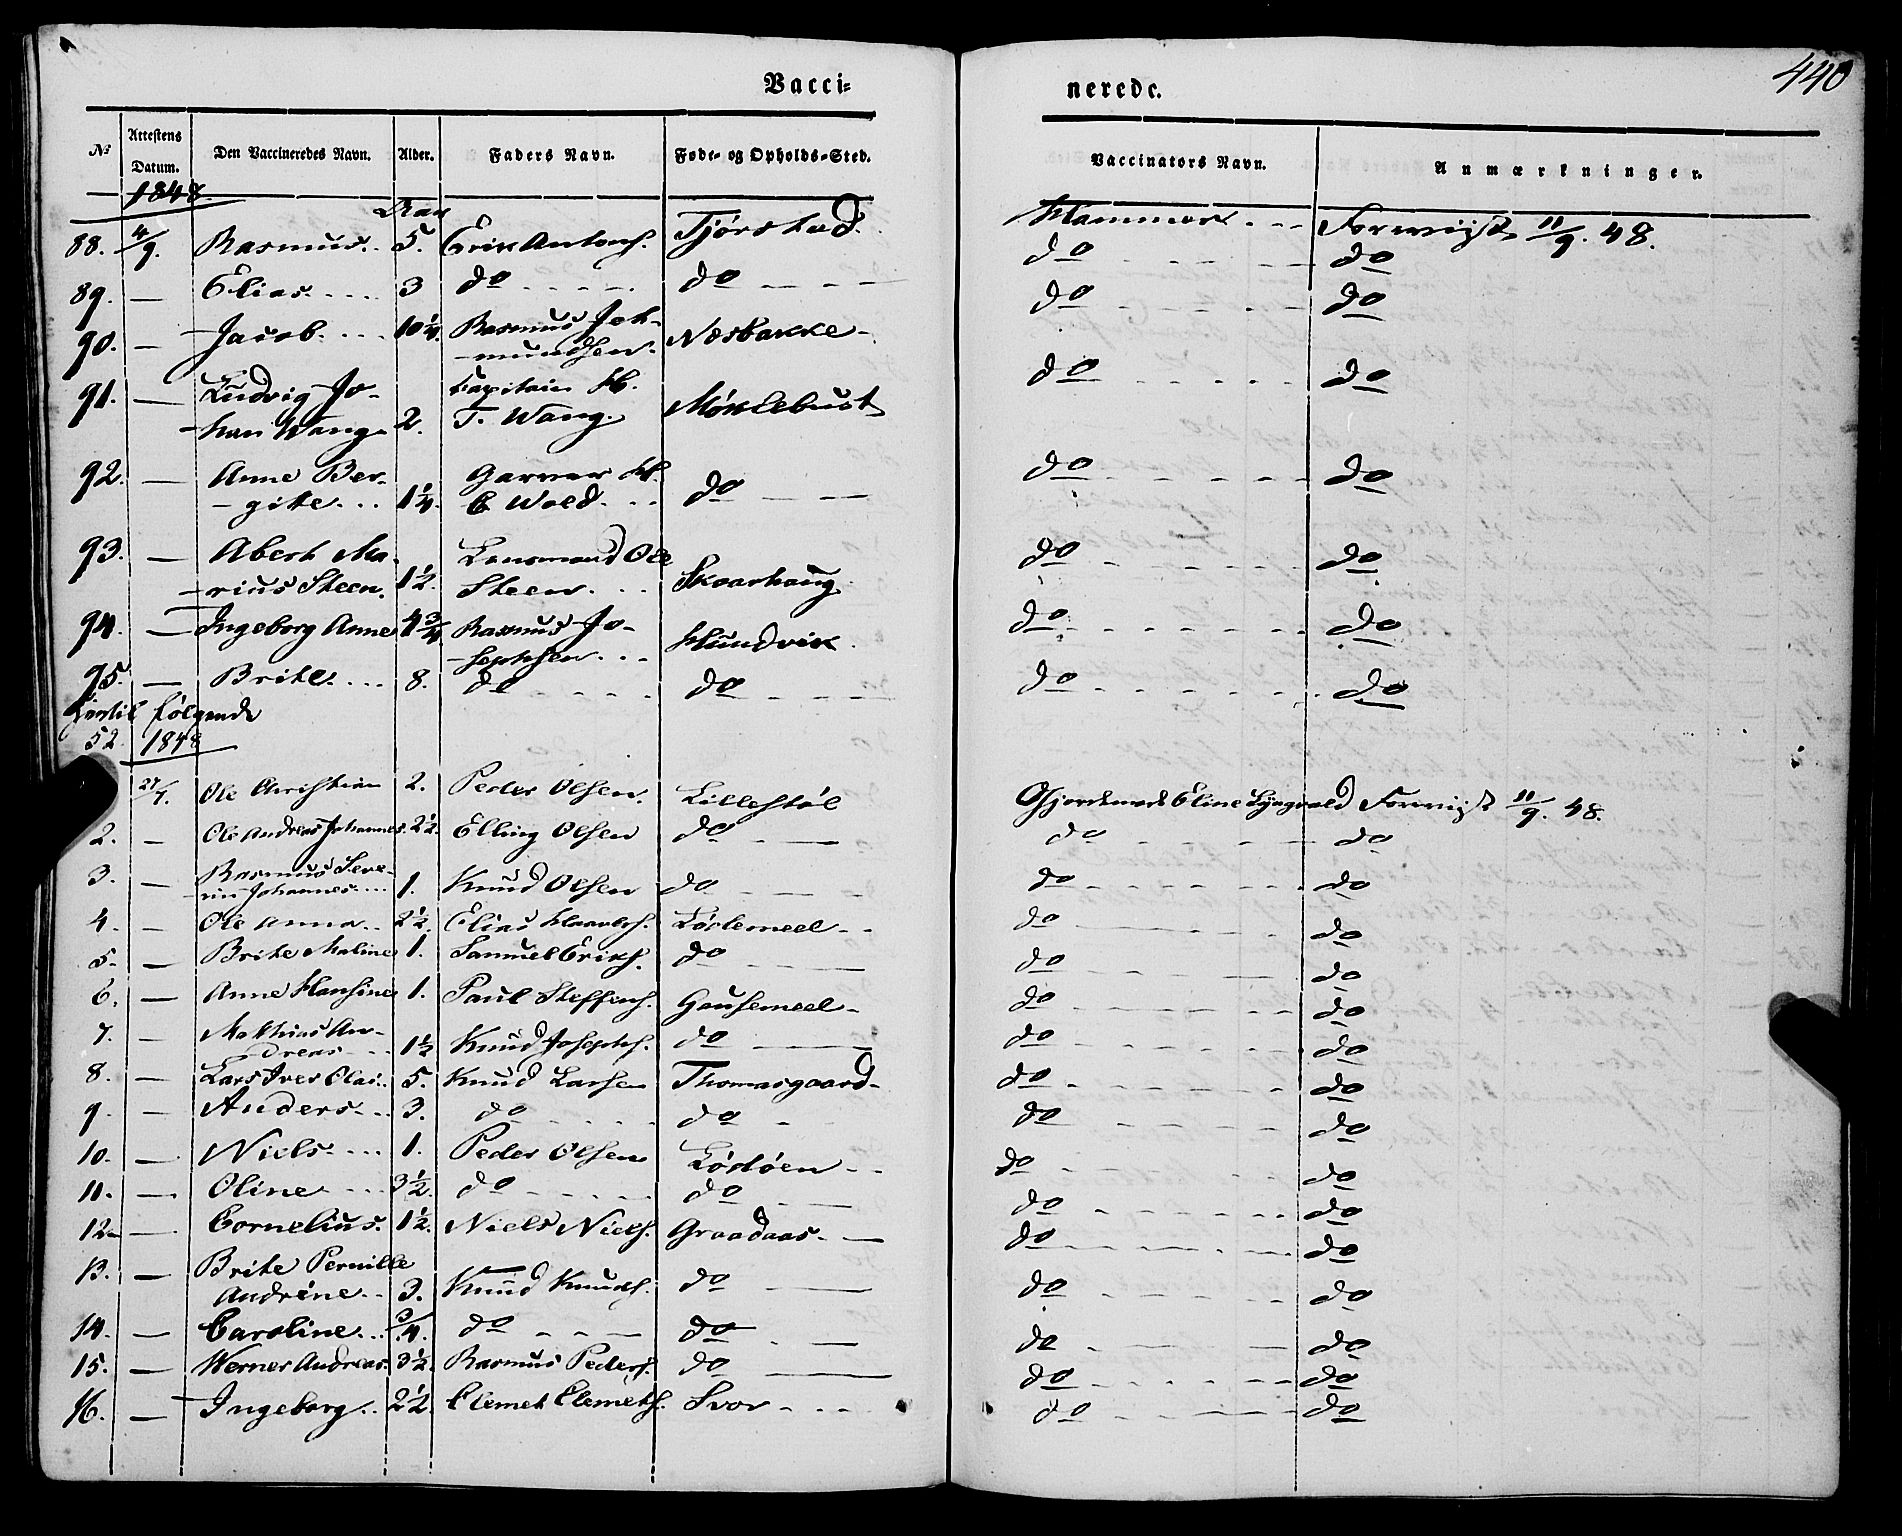 Vacci= nerede.
440
№ Attestens Datum. Den Vaccineredes Navn. Alder. Faders Navn. Føde- og Opholds-Sted. Vaccinators Navn. Anmærkninger.
1848. Aar
88. 4/9. Rasmus.. 5. Erik Antons. Tjørstad. Hammer. - - Forevist 11/9. 48.
89. — Elias.... 3 do - - - - do - - - do - - - - do
90. — Jacob.... 10 1/4. Rasmus Joh-
mundsen. Næsbakke - do - - - - do
91. — Ludvig Jo- Capitain H.
han Wang 2. T. Wang. Møklebust do - - - - do
92. — Anne Ber- Garver H.
gite... 1 1/4. C Wold... do — — do - - - - do
93. — Abert Ma- Lensmand Ole
rius Steen. 1 1/2. Steen... Skaarhaug. do - - - - do
94. — Ingeborg Anne 4 3/4 Rasmus Jo-
sephsen... Hundvik. do - - - - do
95. — Brite.... 8. do - - - - do - - - do - - - - do
følgende
52. 1848
27/7. Ole Christian 2. Peder Olsen. Lillestøl Gjordemod. Eline Lyngvold Forevist 11/9. 48.
2. — Ole Andreas Johannes. 2 1/2. Elling Olsen do - — do - - - - do
3. — Rasmus Seve-
rin Johannes.... 1. Knud Olsen do - — do - - - - do
4. — Ole Anna.. 2 1/2. Elias Haavols. Lødemeel - - do - - - - do
5. — Brite Maline 1. Samuel Eriks. do - — do - - - - do
6. — Anne Hansine 1. Paul Steffens. Gausemeel - do - - - - do
7. — Mathias An-
dreas - - - 1 1/2 Knud Josephs. do - — do - - - - do
8. — Lars Iver Olai.. 5. Knud Larsen Thomasgaard - do - - - - do
9. — Anders... 3. do - - - - do - - do - - - - do
10. — Niels.... 1. Peder Olsen Lødøen - - do - - - - do
11. — Oline.... 3 1/2. do - - - - do - — do - - - - do
12. — Cornelius. 1 1/2. Niels Niels. Graadaas - — do - - - - do
13. — Brite Pernille
Andrine.. 3. Knud Knuds. do — do - - - - do
14. — Caroline... 3/4. do - - - do - — do - - do
15. — Werner Andreas. 3 1/2. Rasmus Peders. do — do - - - - do
16. — Ingeborg.. 2 1/2. Clemet Clemets. Svor - - - do - - - - do